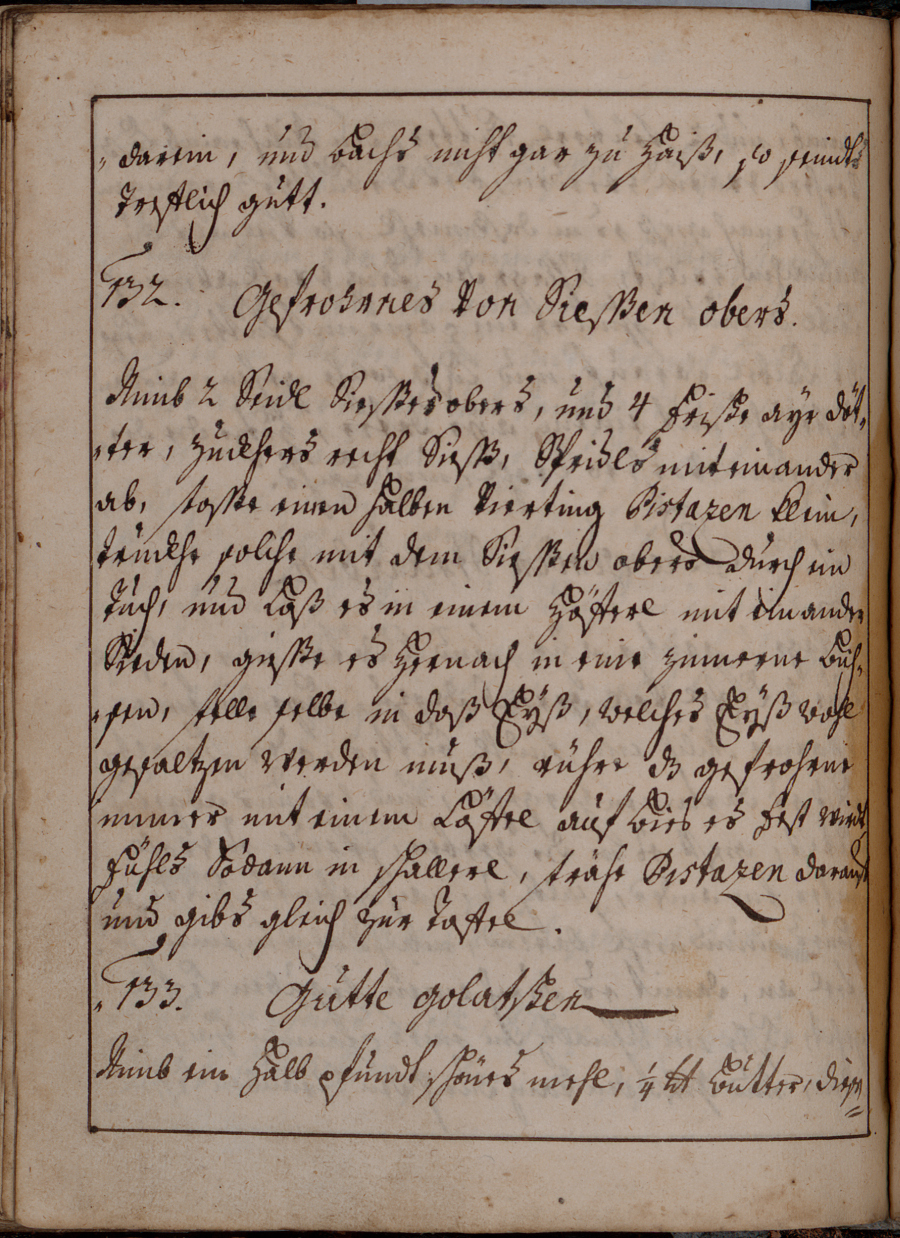 „darein, und bachs nicht gar zu haiß, so seindts
trefflich gutt.
132. Gefrohrnes Von Siessen obers.
Nimb 2 Seidl Siesses obers, und 4 frische ayr döt„
„ter, zuckhers recht Siess, Spridls miteinander
ab, stosse einen halben Vierting Pistazen klein,
truckhe solche mit dem Siessen obers durch ein
tuch, und laß es in einem häfferl mit einander
Sieden, giesse es hernach in eine zinnerne bich„
„sen, stelle selbe in daß Eyß, welches Eyß wohl
gesaltzen werden muß, rühre dz gefrohrne
immer mit einem Löffel auf bies es fest wirdt,
fühls Sodann in schallerl, strähe Pistazen darauf
und gibs gleich zur taffel.
„133. Gutte golatschen
Nimb ein halb pfundt schönes mehl, 1/4 ℔ butter, diese=